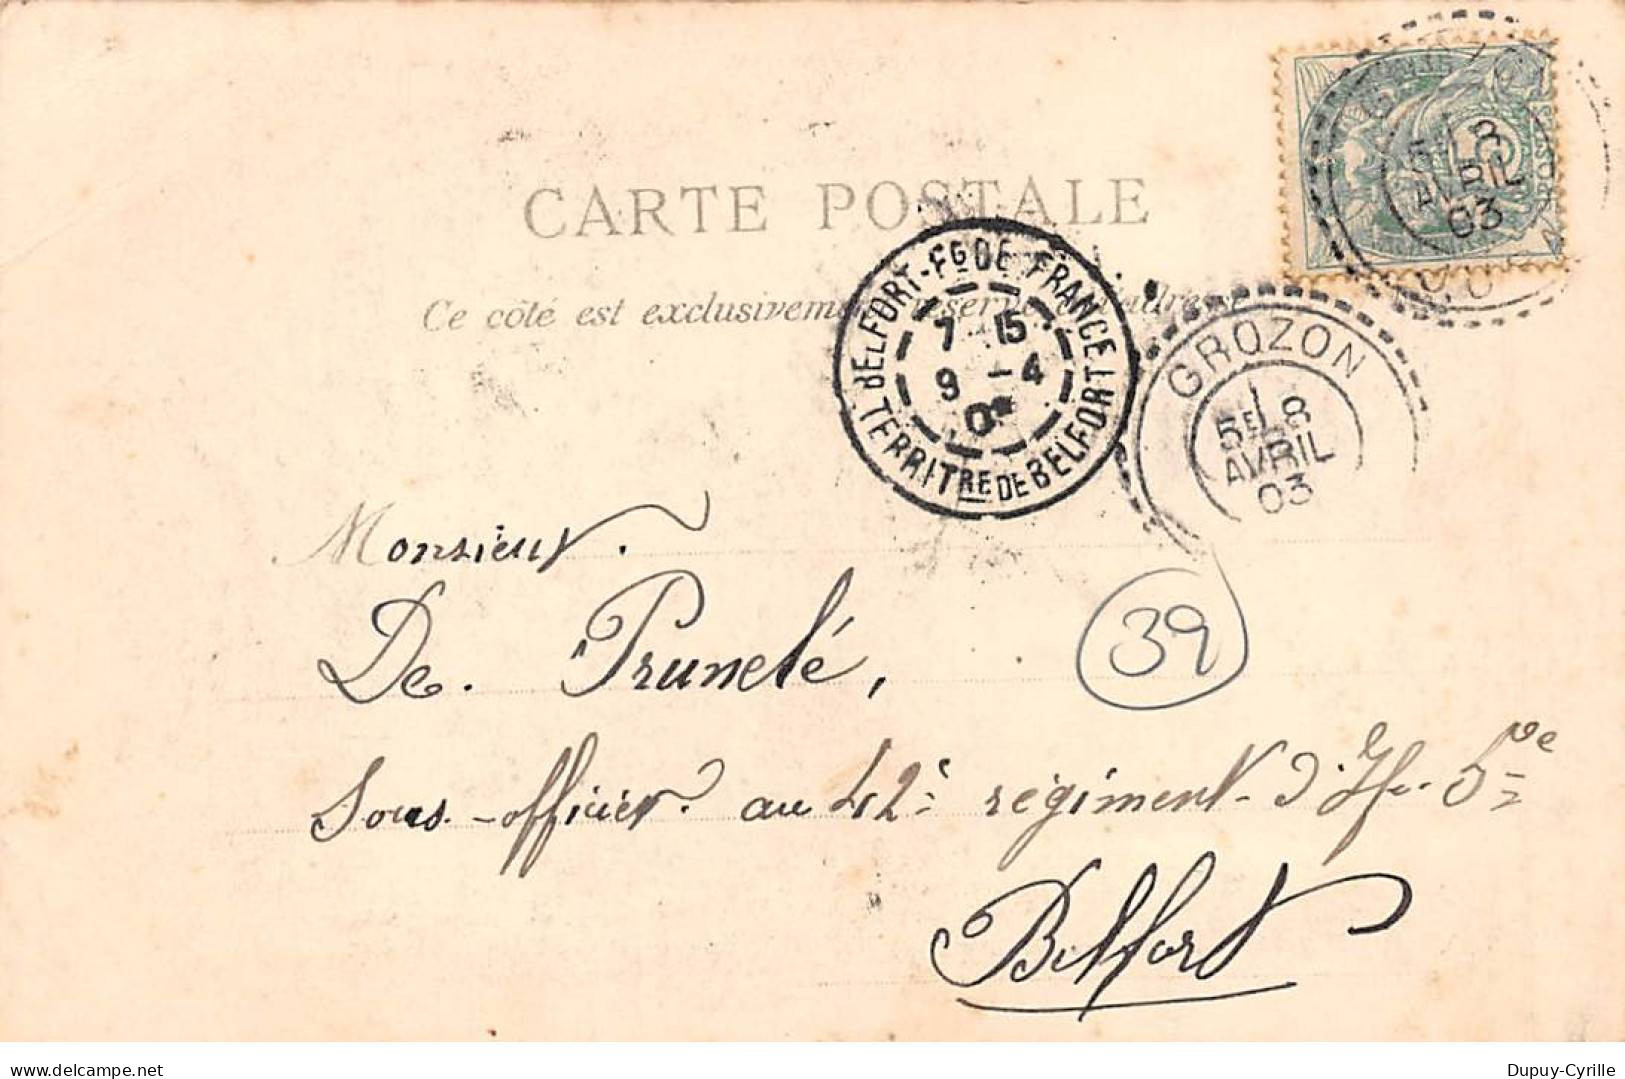 CARTE POSTALE
Ce côté est exclusivement réservé à l'adresse
BELFORT-Fg DE FRANCE
7 15
9 - 4
TERRITRE DE BELFORT
8
AVRIL
03
GROZON
5E 8
AVRIL
03
Monsieur.
De. Prunelé,
39
Sous-officier. au 42e régiment d'Ife. 5e
Belfort
delcampe.net
Dupuy-Cyrille